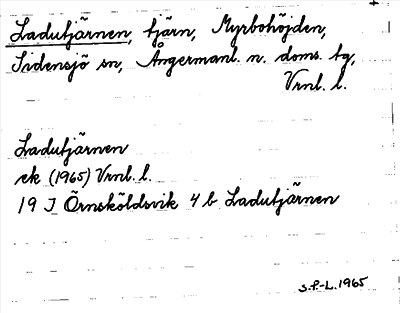 Ladutjärnen, tjärn, Myrbohöjden,
Sidensjö sn, Ångermanl. n. doms. tg,
Vrnl. l.
Ladutjärnen
ek (1965) Vrnl. l.
19 J Örnsköldsvik 4 b Ladutjärnen
S.P-L. 1965